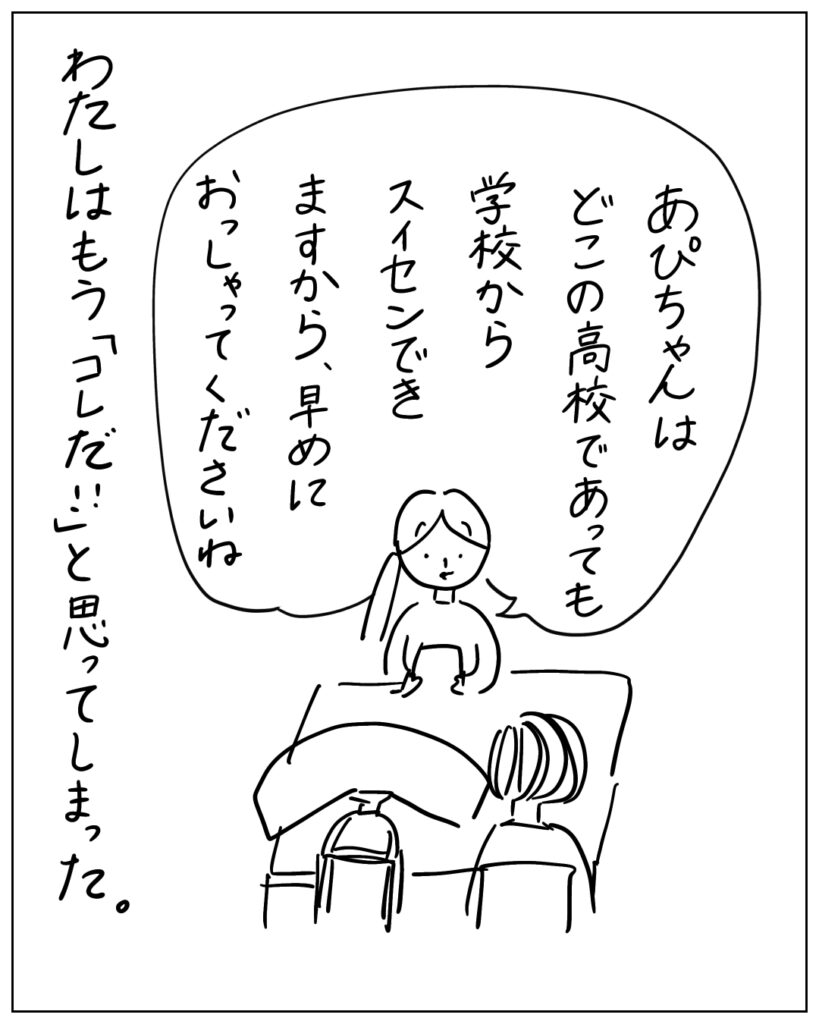 あぴちゃんは
どこの高校であっても
学校から
スイセンでき
ますから、早めに
おっしゃってくださいね
わたしはもう「コレだ!!」と思ってしまった。